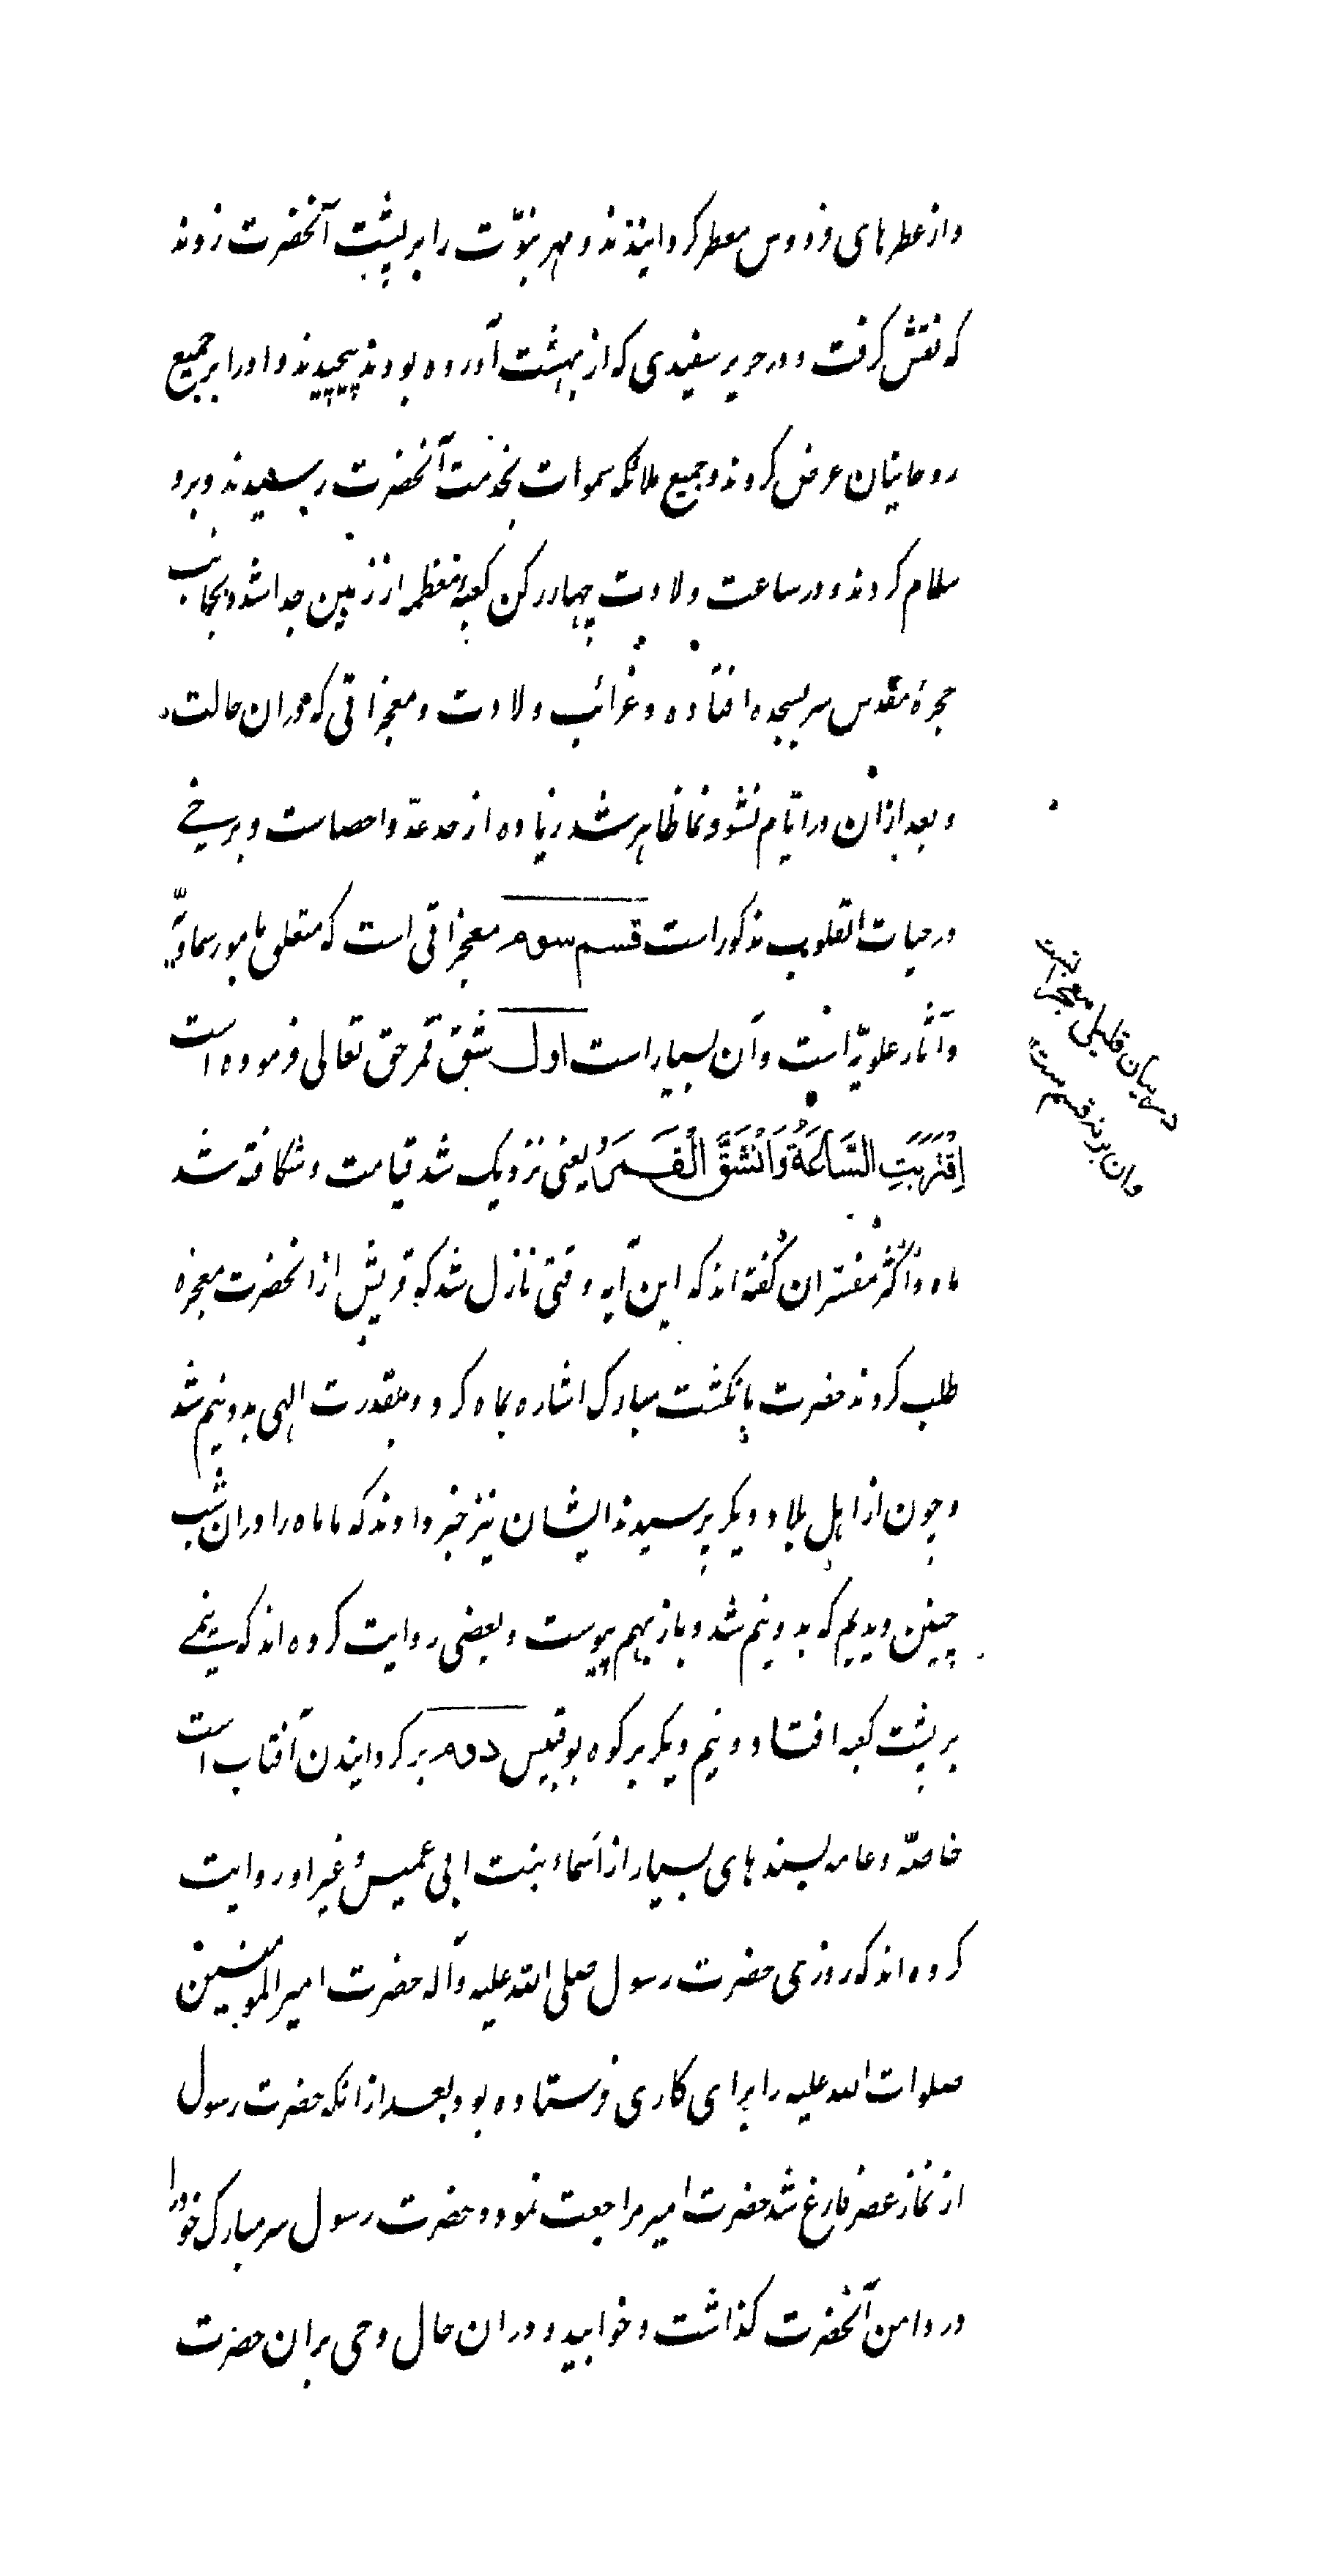 و از عطرهای فردوس معطر کردانیدند و مهر نبوّت را بر پشت آنحضرت زدند
که نقش کرفت و در حریر سفیدی که از بهشت آورده بودند پیچیدند و او را بر جمیع
روحانیان عرض کردند و جمیع ملائکه سموات بخدمت آنحضرت رسیدند و برو
سلام کردند و در ساعت ولادت چهار رکن کعبهٔ معظمه از زمین جدا شد و بجانب
حجرهٔ مقدس سر بسجده افتاده و غرائب ولادت و معجزاتی که در ان حالت
و بعد ازان در ایّام نشو و نما ظاهر شد زیاده از حد عدّ و احصاست و برخی
در حیات القلوب مذکور است قسم سوم معجزاتی است که متعلق بامور سماویّه
و آثار علویّه است و آن بسیار است اول شق قمر حق تعالی فرموده است
اِقْتَرَبَتِ السَّاعَةُ وَانْشَقَّ الْقَمَرُ یعنی نزدیک شد قیامت و شکافته شد
ماه و اکثر مفسّران کفته اند که این آیه وقتی نازل شد که قریش از انحضرت معجزه
طلب کردند حضرت بانکشت مبارک اشاره بماه کرد و بقدرت الهی بدو نیم شد
و چون از اهل بلاد دیکر پرسیدند ایشان نیز خبر دادند که ما ماه را دران شب
چنین دیدیم که بدو نیم شد و باز بهم پیوست و بعضی روایت کرده اند که نیمے
بر پشت کعبه افتاد و نیم دیکر بر کوه بوقبیس دوم بر کردانیدن آفتاب است
خاصّه و عامه بسندهای بسیار از أسماء بنت ابی عمیس و غیر او روایت
کرده اند که روزی حضرت رسول صلی الله علیه و آله حضرت امیر المومنین
صلوات الله علیه را برای کاری فرستاده بود بعد از انکه حضرت رسول
از نماز عصر فارغ شد حضرت امیر مراجعت نمود و حضرت رسول سر مبارک خود را
در دامن آنحضرت کذاشت و خوابید و دران حال وحی بران حضرت
در بیان قلیلی معجزات
وان بر نه قسم ست